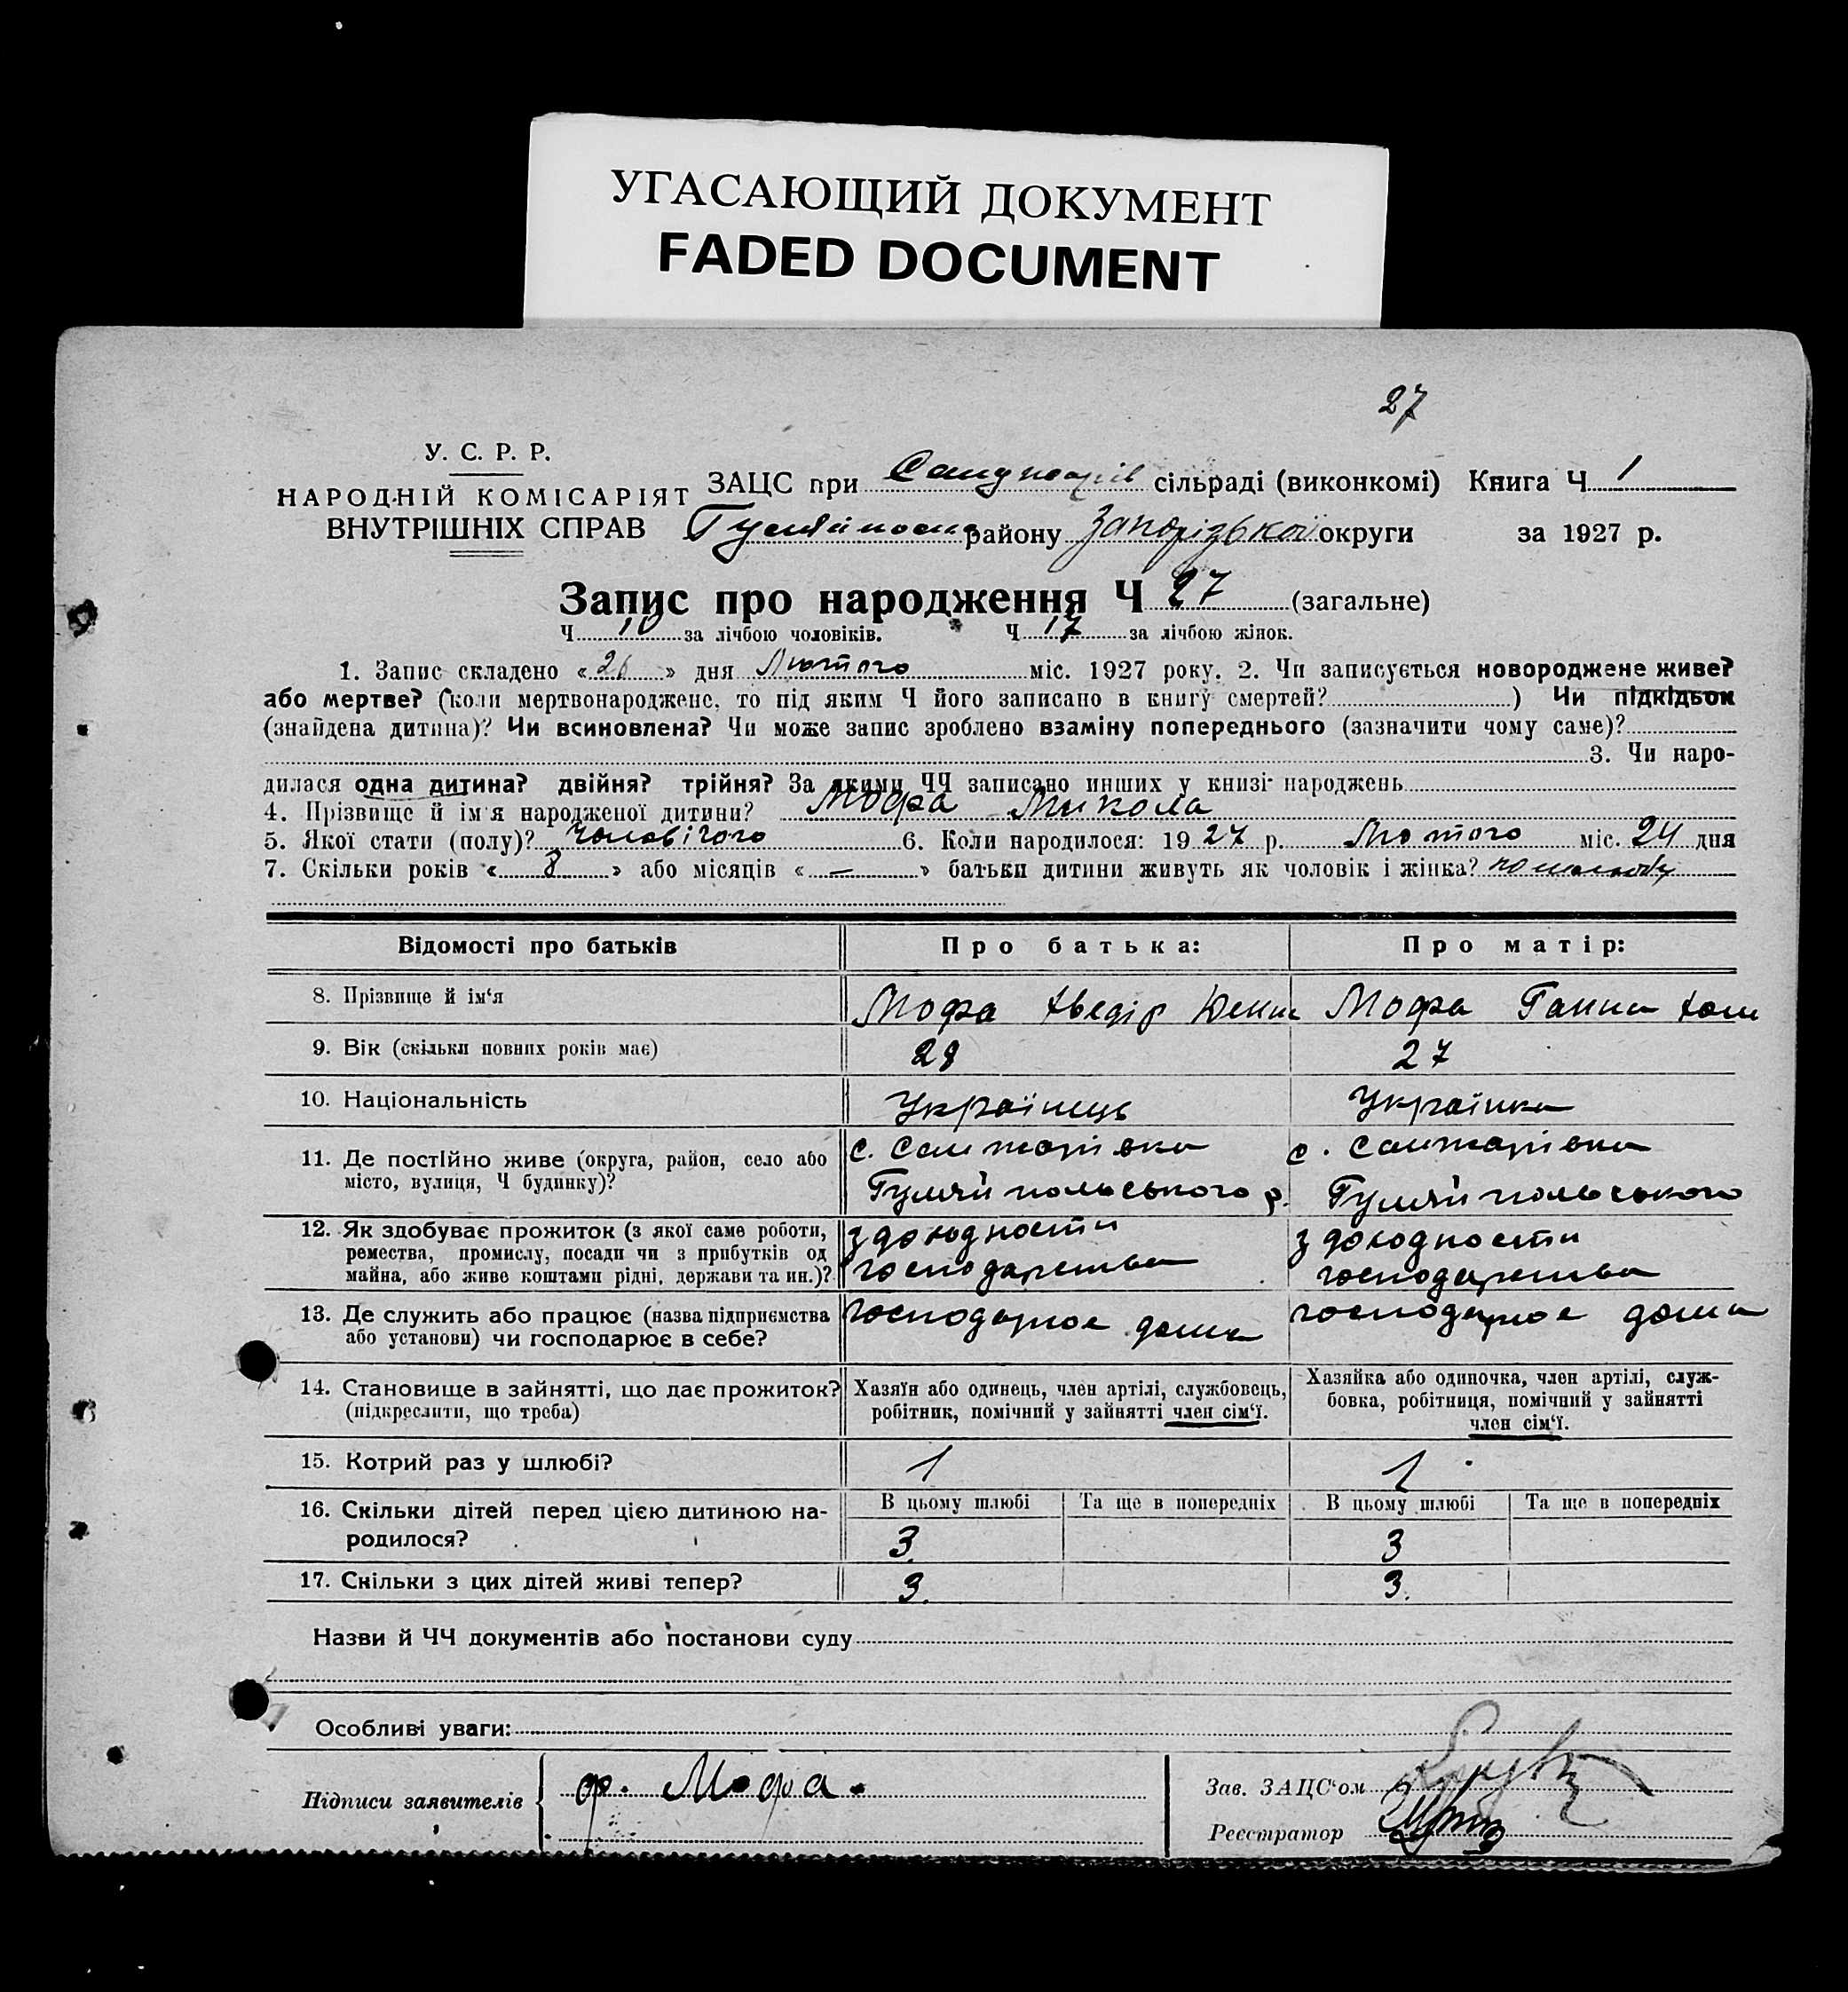 УГАСАЮЩИЙ ДОКУМЕНТ
FADED DOCUMENT
27
У. С. Р. Р.
НАРОДНІЙ КОМІСАРІЯТ
ВНУТРІШНІХ СПРАВ
ЗАЦС при сільраді (виконкомі) Книга Ч 1
району Запорізької округи за 1927 р.
Запис про народження Ч 27 (загальне)
Ч 10 за лічбою чоловіків. Ч 17 за лічбою жінок.
1. Запис складено « 26 » дня Лютого міс. 1927 року. 2. Чи записується новороджене живе?
або мертве? (коли мертвонароджене, то під яким Ч його записано в книгу смертей? ) Чи підкідьок
(знайдена дитина)? Чи всиновлена? Чи може запис зроблено взаміну попереднього (зазначити чому саме)?
3. Чи наро-
дилася одна дитина? двійня? трійня? За якими ЧЧ записано инших у книзі народжень
4. Прізвище й ім'я народженої дитини? Мофа Микола
5. Якої стати (полу)? чоловічого 6. Коли народилося: 19 27 р. Лютого міс. 24 дня
7. Скільки років « 8 » або місяців « — » батьки дитини живуть як чоловік і жінка?
Відомості про батьків Про батька: Про матір:
8. Прізвище й ім'я Мофа Хведір Мофа Ганна
9. Вік (скільки повних років має) 28 27
10. Національність Українець Українка
11. Де постійно живе (округа, район, село або
місто, вулиця, Ч будинку)?
с. Санжарівка
Гуляйпольського р.
с. Санжарівка
Гуляйпольського
12. Як здобуває прожиток (з якої саме роботи,
ремества, промислу, посади чи з прибутків од
майна, або живе коштами рідні, держави та ин.)?
з доходности
господарства
з доходности
господарства
13. Де служить або працює (назва підприємства
або установи) чи господарює в себе?
господарює дома
господарює дома
14. Становище в зайнятті, що дає прожиток?
(підкреслити, що треба)
Хазяїн або одинець, член артілі, службовець,
робітник, помічний у зайнятті член сім'ї.
Хазяйка або одиночка, член артілі, служ-
бовка, робітниця, помічний у зайнятті
член сім'ї.
15. Котрий раз у шлюбі? 1 1
16. Скільки дітей перед цією дитиною на-
родилося?
В цьому шлюбі Та ще в попередніх В цьому шлюбі Та ще в попередніх
3 3
17. Скільки з цих дітей живі тепер? 3. 3.
Назви й ЧЧ документів або постанови суду
Особливі уваги:
Підписи заявителів ф. Мофа.
Зав. ЗАЦС'ом
Реєстратор